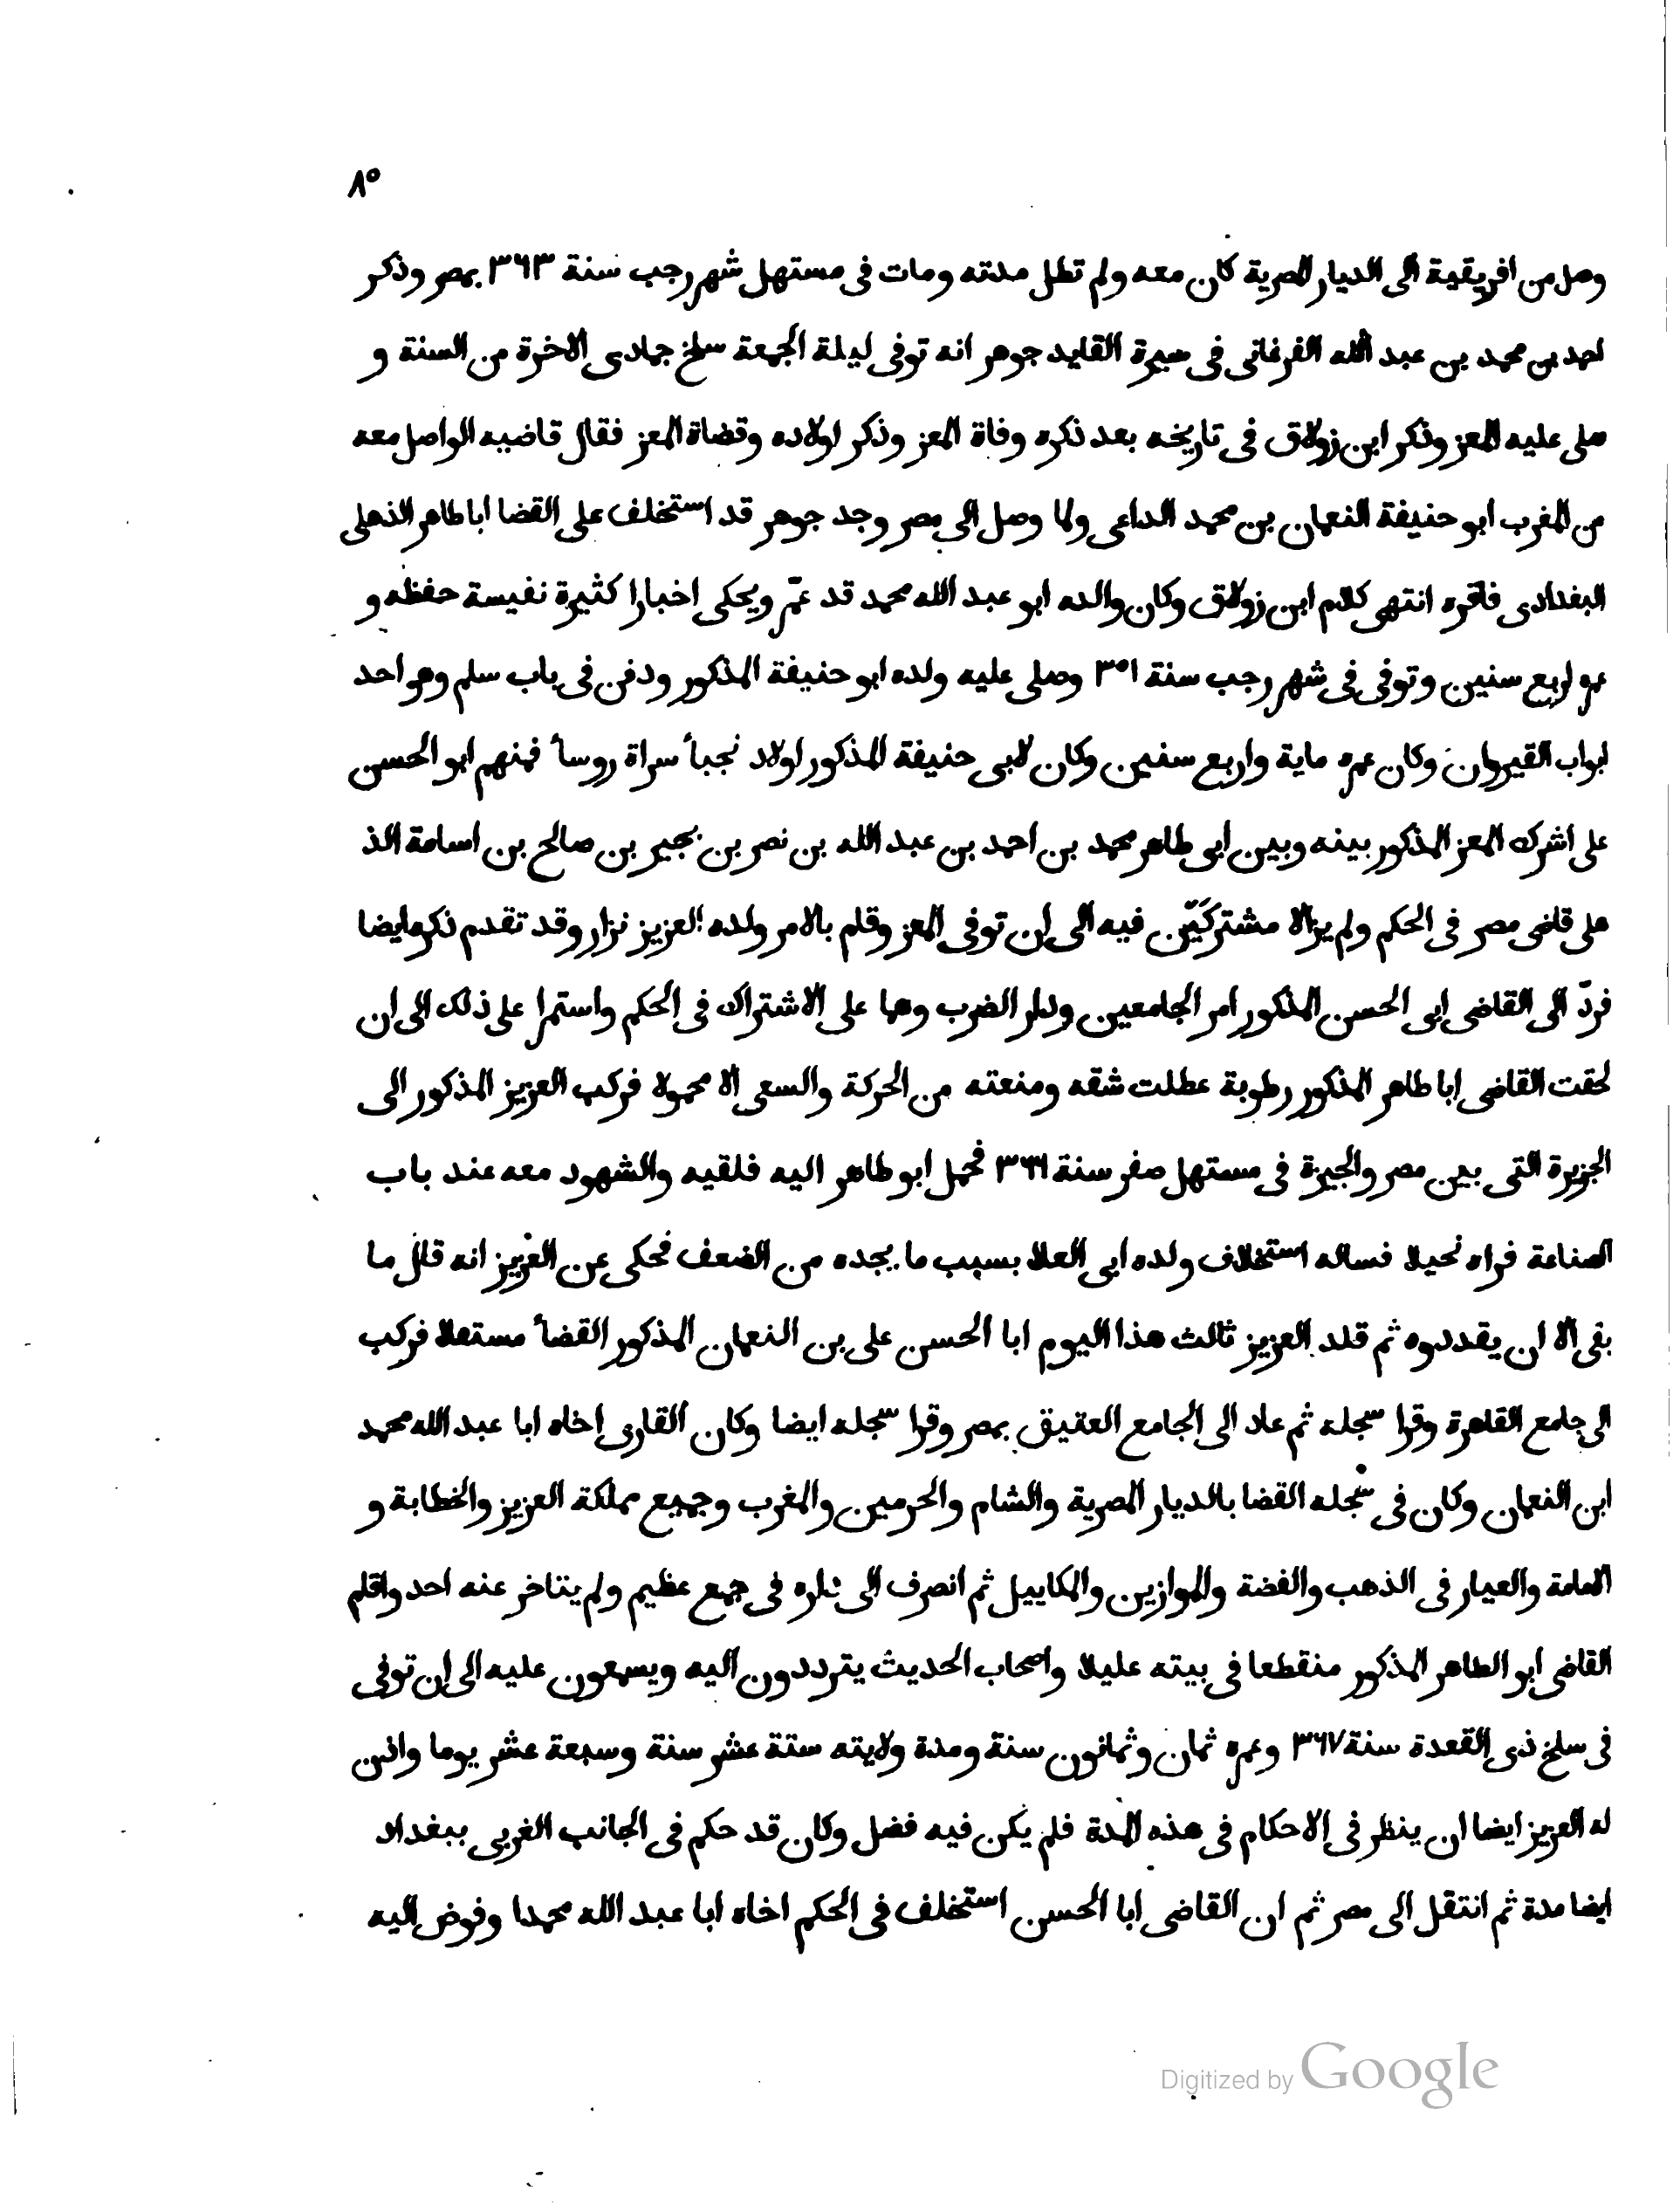 ٨٥
وصل من افريقية الى الديار المصرية كان معه ولم تطل مدته ومات فى مستهل شهر رجب سنة ٣٦٣ بمصر وذكر
احمد بن محمد بن عبد الله الفرغانى فى سيرة القايد جوهر انه توفى ليلة الجمعة سلخ جمادى الاخرة من السنة و
صلى عليه المعز وذكر ابن زولاق فى تاريخه بعد ذكره وفاة المعز وذكر اولاده وقضاة المعز فقال قاضيه الواصل معه
من المغرب ابو حنيفة النعمان بن محمد الداعى ولما وصل الى مصر وجد جوهر قد استخلف على القضا ابا طاهر الذهلى
البغدادى فاقره انتهى كلام ابن زولاق وكان والده ابو عبد الله محمد قد عمّر ويحكى اخبارا كثيرة نفيسة حفظه و
عمره اربع سنين وتوفى فى شهر رجب سنة ٣٥١ وصلى عليه ولده ابو حنيفة المذكور ودفن فى باب سلم وهو احد
ابواب القيروان وكان عمره ماية واربع سنين وكان لابى حنيفة المذكور اولاد نجبأ سراة روسأ فمنهم ابو الحسن
على اشرك المعز المذكور بينه وبين ابى طاهر محمد بن احمد بن عبد الله بن نصر بن بجير بن صالح بن اسامة الذ
هلى قاضى مصر فى الحكم ولم يزالا مشتركَيّن فيه الى ان توفى المعز وقام بالامر ولده العزيز نزار وقد تقدم ذكره ايضا
فردّ الى القاضى ابى الحسن المذكور امر الجامعين ودار الضرب وهما على الاشتراك فى الحكم واستمرا على ذلك الى ان
لحقت القاضى ابا طاهر المذكور رطوبة عطلت شقه ومنعته من الحركة والسعى الا محمولا فركب العزيز المذكور الى
الجزيرة التى بين مصر والجيزة فى مستهل صفر سنة ٣٦٦ فحمل ابو طاهر اليه فلقيه والشهود معه عند باب
الصناعة فراه نحيلا فساله استخلاف ولده ابى العلا بسبب ما يجده من الضعف فحكى عن العزيز انه قال ما
بقى الا ان يقددوه ثم قلد العزيز ثالث هذا اليوم ابا الحسن على بن النعمان المذكور القضأ مستقلا فركب
الى جامع القاهرة وقرا سجله ثم عاد الى الجامع العتيق بمصر وقرا سجله ايضا وكان القارى اخاه ابا عبد الله محمد
ابن النعمان وكان فى سجله القضا بالديار المصرية والشام والحرمين والمغرب وجميع مملكة العزيز والخطابة و
الامامة والعيار فى الذهب والفضة والموازين والمكاييل ثم انصرف الى داره فى جمع عظيم ولم يتاخر عنه احد واقام
القاضى ابو الطاهر المذكور منقطعا فى بيته عليلا واصحاب الحديث يترددون اليه ويسمعون عليه الى ان توفى
فى سلخ ذى القعدة سنة ٣٦٧ وعمره ثمان وثمانون سنة ومدة ولايته ستة عشر سنة وسبعة عشر يوما واذن
له العزيز ايضا ان ينظر فى الاحكام فى هذه المدة فلم يكن فيه فضل وكان قد حكم فى الجانب الغربى ببغداد
ايضا مدة ثم انتقل الى مصر ثم ان القاضى ابا الحسن استخلف فى الحكم اخاه ابا عبد الله محمدا وفوض اليه
Digitized by Google